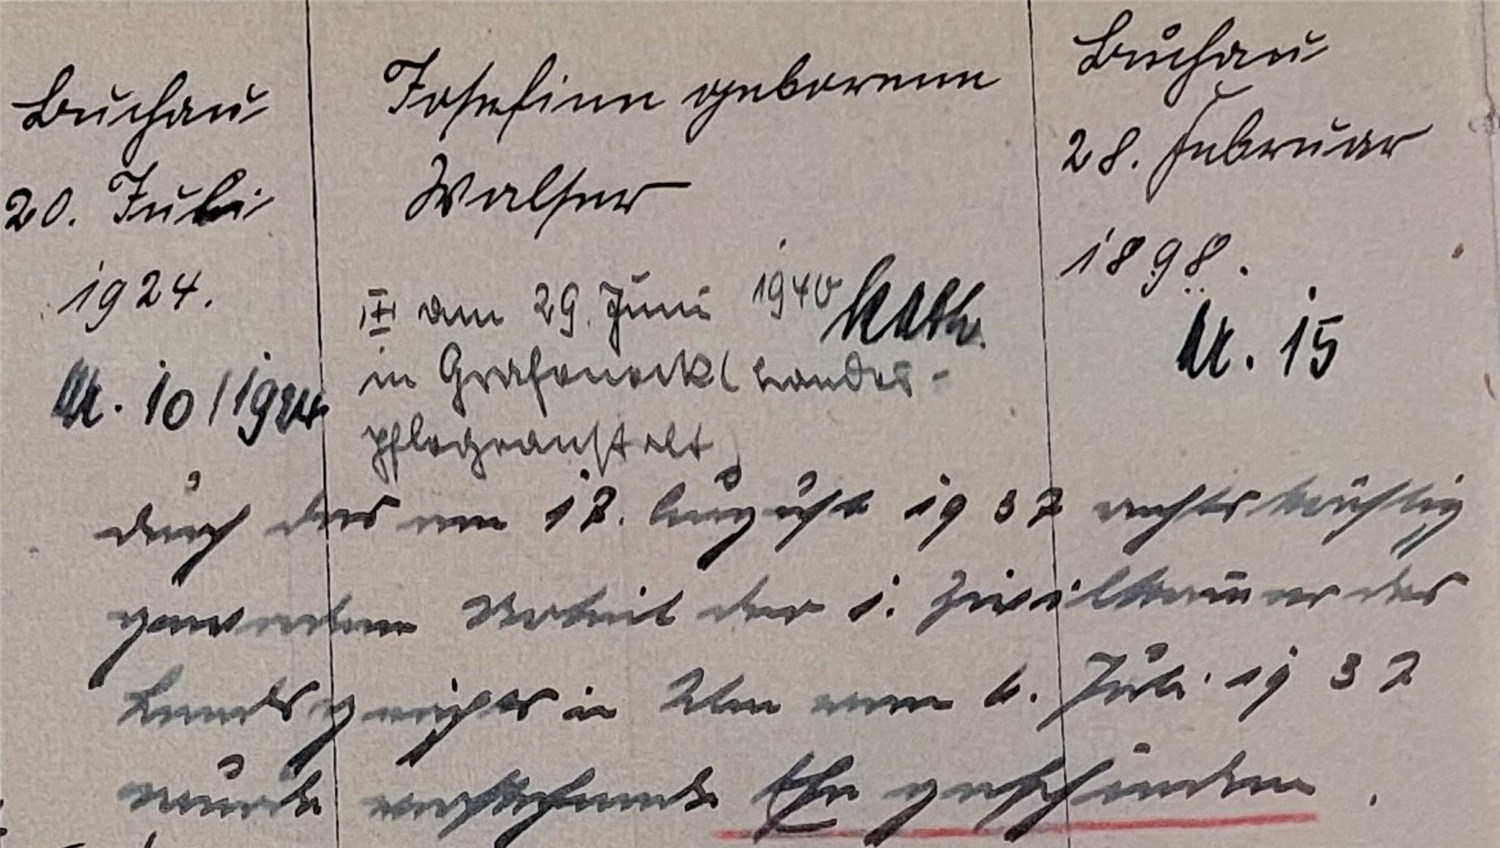 Buchau
20. Juli
1924.
Nr. 10/1924
Josefine geborene
Walser
am 29. Juni 1940 kath.
in Grafeneck (Landes-
pflegeanstalt)
Buchau
28. Februar
1898.
Nr. 15
durch das am 17. August 1937 rechtskräftig
gewordene Urteil der 1. Zivilkammer des
Landgerichts in Ulm vom 6. Juli 1937
wurde vorstehende Ehe geschieden.